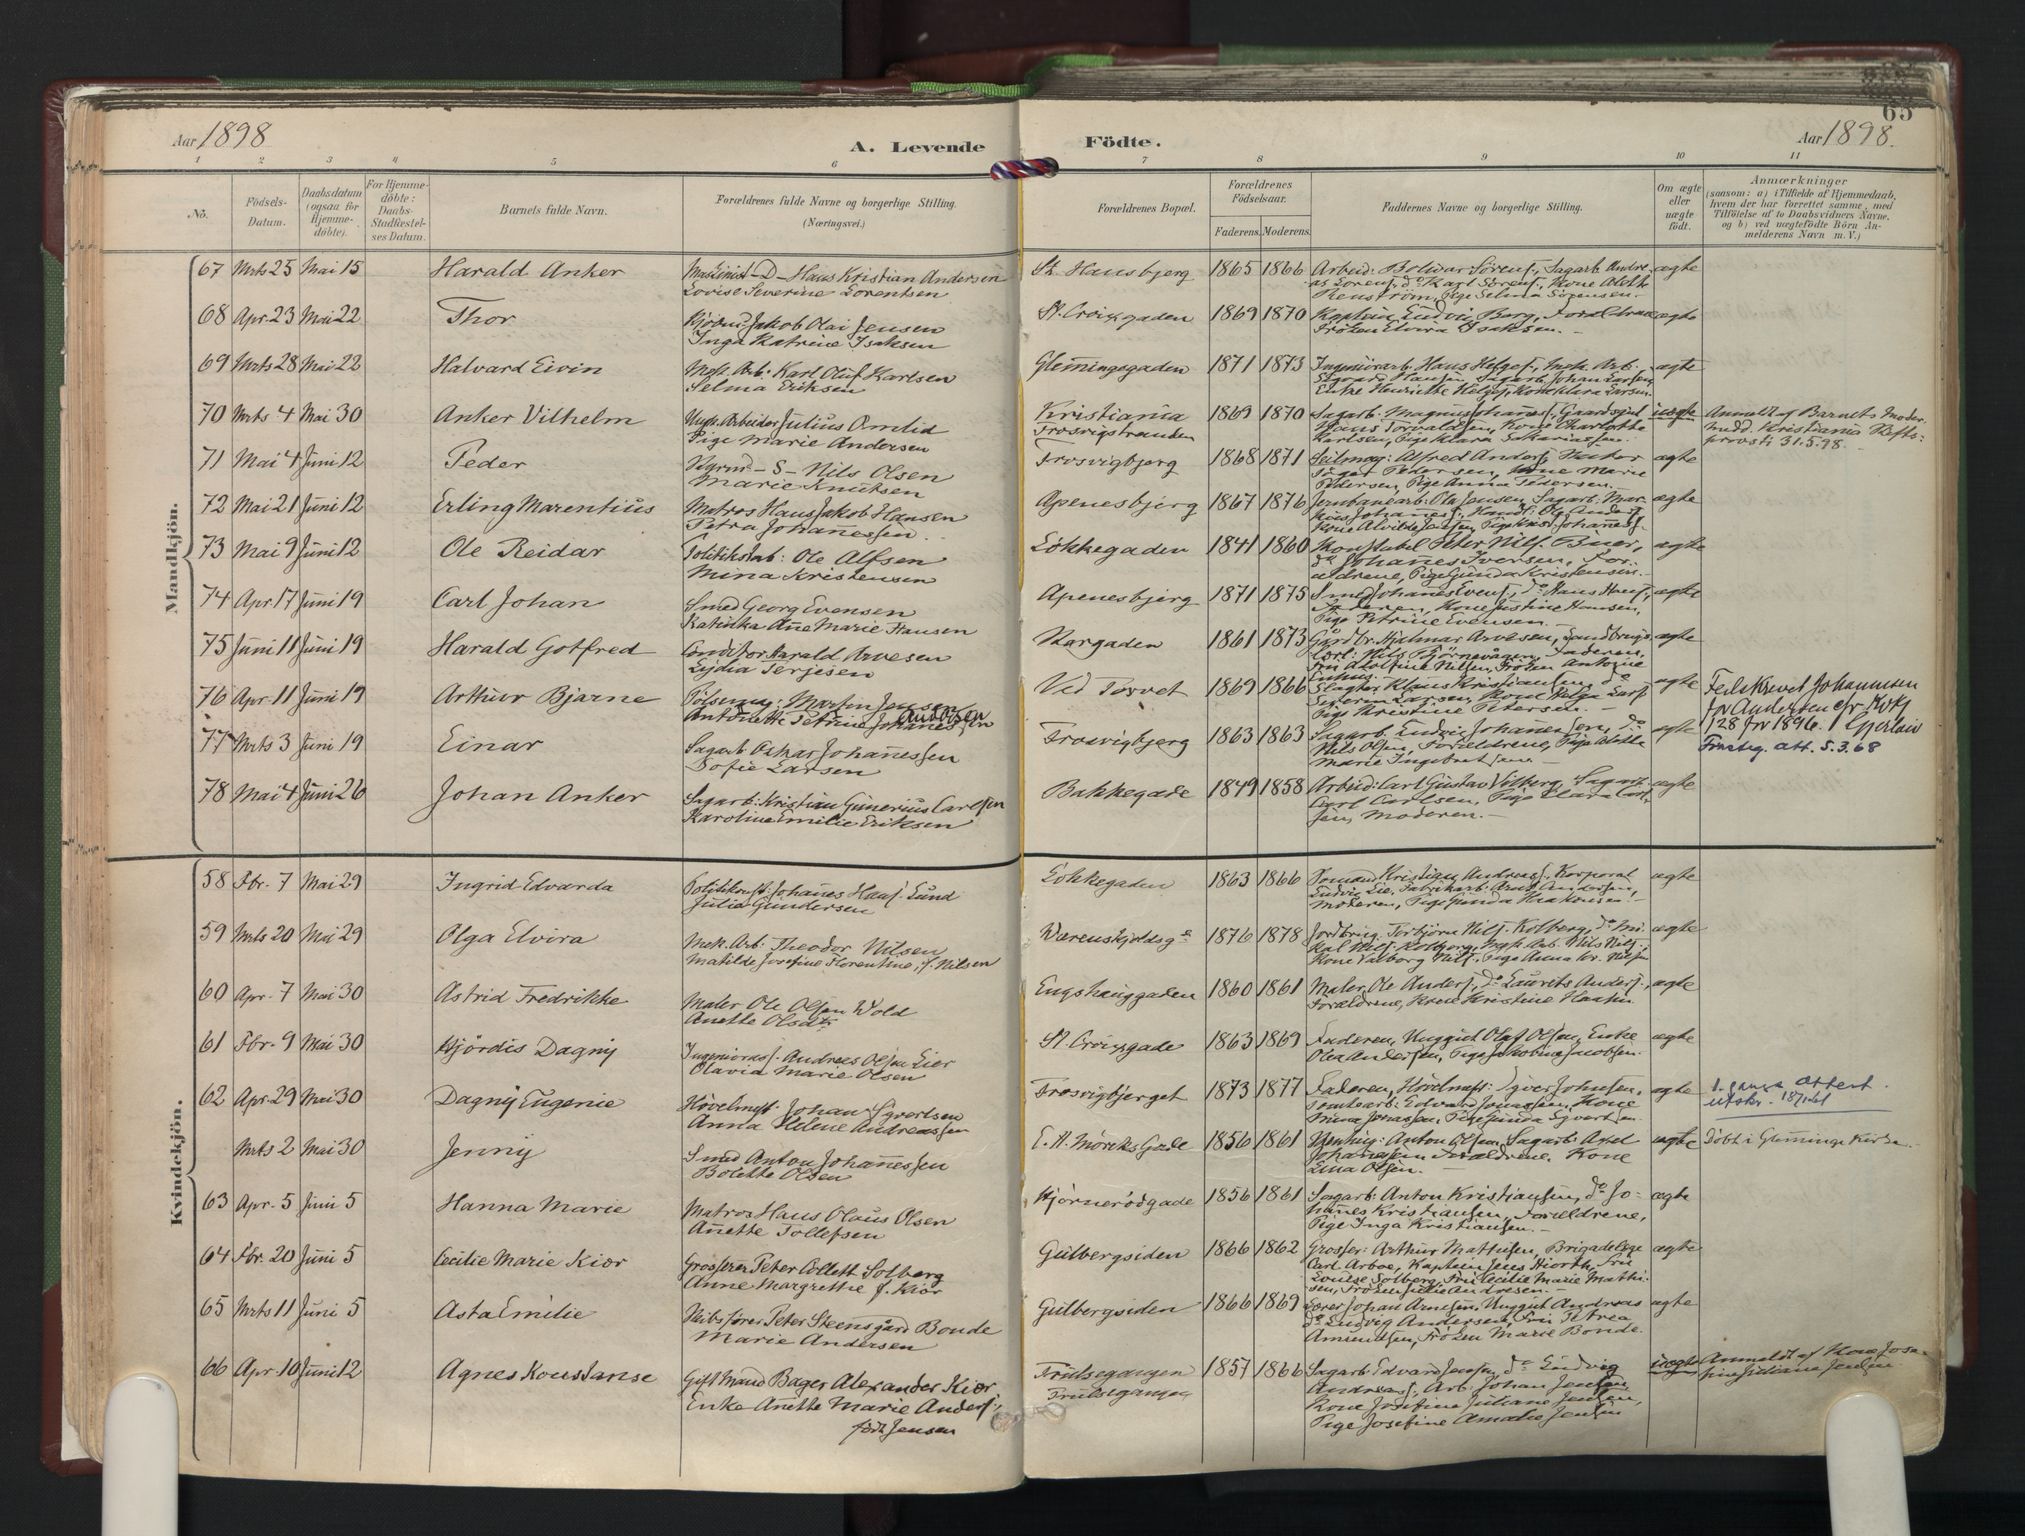 65
Aar 1898
A. Levende
Födte.
Aar 1898.
1 2 3 4 5 6 7 8 9 10 11
Nö.
Födsels-
Datum.
Daabsdatum
(ogsaa for
Hjemme-
döbte).
For Hjemme-
döbte:
Daabs-
Stadfæstel-
ses Datum.
Barnets fulde Navn.
Forældrenes fulde Navne og borgerlige Stilling.
(Næringsvei.)
Forældrenes Bopæl.
Forældrenes
Födselsaar.
Faderens. Moderens.
Faddernes Navne og borgerlige Stilling.
Om ægte
eller
uægte
födt.
Anmærkninger
(saasom: a) i Tilfælde af Hjemmedaab,
hvem der har forrettet samme, med
Tilföielse af to Daabsvidners Navne.
og b) ved uægtefödte Börn An-
melderens Navn m. V.)
Mandkjön.
67 Mrts 25 Mai 15 Harald Anker
Maskinist -D- Hans Kristian Andersen
Lovise Severine Lorentsen
St. Hansbjerg 1865 1866
Pige Selma Sörensen.
ægte
68 Apr. 23 Mai 22 Thor
Jakob Olai Jensen
Inga Katrine Isaksen
St. Croixgaden 1869 1870
Kaptein Ludvig Berg, Forældrene
Fröken Elvira Isaksen.
ægte
69 Mrts 28 Mai 22 Halvard Eivin
Mek. Arb. Karl Oluf Karlsen
Selma Eriksen
Glemingegaden 1871 1873
Sagarb. Johan Larsen
Enke Henriette Helges, Kone Klara Larsen.
ægte
70 Mrts 4 Mai 30 Anker Vilhelm
Arbeider Julius Omlid
Pige Marie Andersen
Kristiania
Trosvigstranden
1869 1870
Hans Torvaldsen, Kone Charlotte
Karlsen, Pige Klara
uægte
Anmeldt af Barnets Moder.
medd. Kristiania Stifts-
provsti 31.5.98.
71 Mai 4 Juni 12 Peder
-S- Nils Olsen
Marie Knutsen
Trosvigbjerg 1868 1871
Seilmag: Alfred Anders,
Pedersen, Kone Marie
Pedersen, Pige Anna Pedersen.
ægte
72 Mai 21 Juni 12 Erling Marentius
Matros Hans Jakob Hansen
Petra Johannessen
Apenesbjerg 1867 1876
Jernbanearb: Ole Jensen, Sagarb. Mar-
ægte
73 Mai 9 Juni 12 Ole Reidar
Ole Alfsen
Mina Kristensen
Lökkegaden 1841 1860
Konstabel Peter Nils. Buer,
do Johannes Iversen, For-
ældrene, Pige Gunda Kristensen.
ægte
74 Apr 17 Juni 19 Carl Johan
Smed Georg Evensen
Katinka Ane Marie Hansen
Apenesbjerg 1871 1875
Smed Johannes Evens, do Hans Hans,
Faderen, Kone Justine Hansen,
Pige Petrine Evensen.
ægte
75 Juni 11 Juni 19 Harald Gotfred
Conditor Harald Arvesen
Lydia Terjesen
Norgaden 1861 1873
Gårdbr. Hjalmar Arvesen,
Nils Bjørnevågen, Faderen,
Fru Adolfine Nilsen, Fröken Antonie
ægte
76 Apr. 11 Juni 19 Arthur Bjarne
Pölsemag: Martin Jensen
Antonette Petrine Johannessen
Andersen
Ved Torvet 1869 1866
Slagter Klaus Kristiansen, do
Severin Larsen, Kone Helga Lars
Pige Kristine Petersen.
ægte
Feilskrevet Johannesen
for Andersen
128 for 1896.
att. 5.3.68
77 Mrts 3 Juni 19 Einar
Sagarb Oskar Johannessen
Sofie Larsen
Trosvigbjerg 1863 1863
Sagarb. Ludvig Johannessen, do
Nils Olsen, Forældrene, Pige
Marie Ingebretsen.
ægte
78 Mai 4 Juni 26 Johan Anker
Sagarb: Kristian Gunerius Carlsen
Karoline Emilie Eriksen
Bakkegade 1849 1858
Arbeid: Carl Gustav Vilberg, Sagarb
Carl Carlsen, Pige Klara Carl-
sen, Moderen.
ægte
Kvindekjön.
58 Fbr. 7 Mai 29 Ingrid Edvarda
Politikonst. Johannes Hans. Lund
Julie Gundersen
Lökkegaden 1863 1866
Tomand Kristian Andreas. Korporal
Ludvig Lie, Fabrikarb. Arnt Andersen,
Moderen, Pige Gunda Haakonsen.
ægte
59 Mrts 20 Mai 29 Olga Elvira
Mek. Arb: Theodor Nilsen
Matilde Josefine Florentine, f. Nilsen
Værenskjoldsge 1876 1878
Torbjörn Nils. Kolberg, do Mi-
kal Nils. Kolberg, Mek. Arb. Nils Nils.,
Kone Valborg Nils., Pige Anna Kr. Nilsen
ægte
60 Apr. 7 Mai 30 Astrid Fredrikke
Maler Ole Olsen Wold
Anette Olsdtr
Engshauggaden 1860 1861
Maler Ole Anders., do Laurits Anders.,
Forældrene, Kone Kristine
ægte
61 Fbr. 9 Mai 30 Hjördis Dagny
Andreas Olsen Lier
Olavia Marie Olsen
St. Croixgade 1863 1869
Faderen, Unggut Olaf Olsen, Enke
Olea Andersen, Pige Jakobine Jacobsen.
ægte
62 Apr. 29 Mai 30 Dagny Eugenie
Hövelmest. Johan Syvertsen
Anna Helene Andreassen
Trosvigbjerget 1873 1877
Faderen, Hövelmest: Syver Johnsen,
Tomtearb: Edvard Jonassen, Kone
Mina Jonassen, Pige Gunda Syvertsen
ægte
1. gangs attest
utskr.
Mrts 2 Mai 30 Jenny
Smed Anton Johannessen
Bolette Olsen
E. H. Mörcks Gade 1856 1861
Anton Olsen, Sagarb: Axel
Johannessen, Forældrene, Kone
Lina Olsen.
ægte
Döbt i Glemminge Kirke.
63 Apr. 5 Juni 5 Hanna Marie
Matros Hans Olaus Olsen
Anette Tollefsen
Hjörnerödgade 1856 1861
Sagarb: Anton Kristiansen, do Jo-
hannes Kristiansen, Forældrene,
Pige Inga Kristiansen.
ægte
64 Fbr. 20 Juni 5 Cecilie Marie Kiör
Grosserer Peter Collett Solberg
Anne Margrethe f. Kiör
Gulbergsiden 1866 1862
Grosser: Arthur Mathisen, Brigadelæge
Carl Arboe, Kaptein Jens Hiorth, Fru
Louise Solberg, Fru Cecilie Marie Mathi-
sen, Fröken Julie Andresen.
ægte
65 Mrts 11 Juni 5 Asta Emilie
Skibsförer Peter Steensgård Bonde
Marie Andersen
Gulbergsiden 1866 1869
Lærer Johan Arnesen, Unggut Andreas
do Ludvig Andersen, Fru Petrea
Amundsen, Fröken Marie Bonde.
ægte
66 Apr. 10 Juni 12 Agnes Konstanse
Gift Mand Bager Alexander Kiör,
Enke Anette Marie Anders.,
födt Jensen
Frülsegangen
Frülsegangen
1857 1866
Sagarb Edvard Jensen, do Ludvig
Andreas., Arb: Johan Jensen,
Kone Josefine Juliane Jensen,
Pige Josefine Amalie Jensen
uægte
Anmeldt af Kone Jose-
fine Juliane Jensen